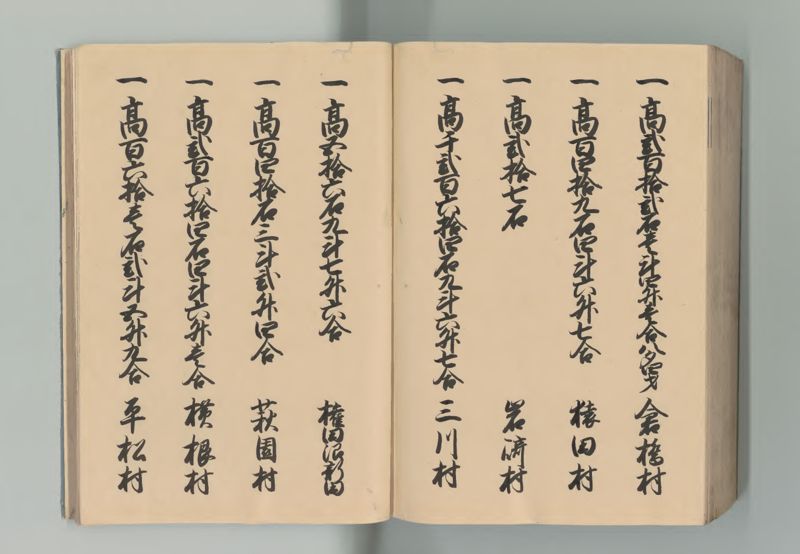 一 高弐百拾弐石壱斗四升壱合八夕四才 倉橋村
一 高百四拾九石四斗六升七合 猿田村
一 高弐拾七石 岩流村
一 高千弐百六拾四石九斗六升七合 三川村
一 高五拾六石九斗七升六合 新田
一 高百四拾石三斗弐升四合 萩園村
一 高弐百六拾四石四斗六升壱合 横根村
一 高百六拾壱石弐斗五升九合 平松村